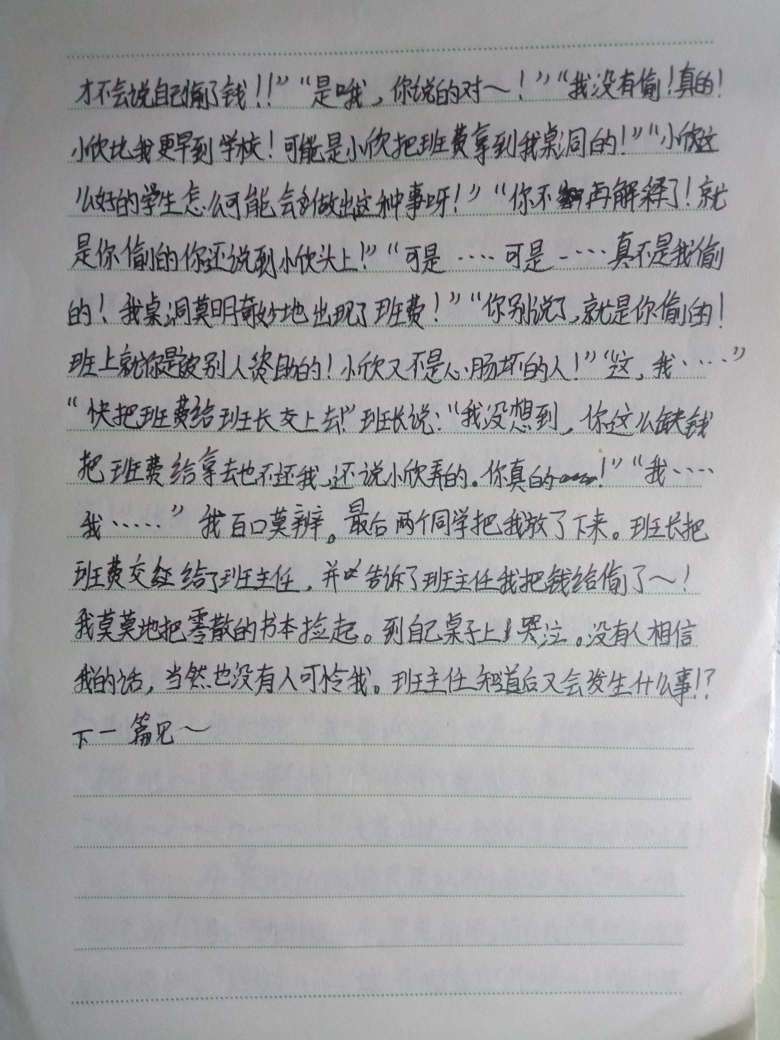 才不会说自己偷了钱！！”“是哦，你说的对～！”“我没有偷！真的！
小欣比我更早到学校！可能是小欣把班费拿到我桌洞的！”“小欣这
么好的学生怎么可能会做出这种事呀！”“你不再解释了！就
是你偷的你还说到小欣头上！”“可是……可是……真不是我偷
的！我桌洞莫明奇妙地出现了班费！”“你别说了，就是你偷的！
班上就你是被别人资助的！小欣又不是心肠坏的人！”“这，我……”
“快把班费给班长交上去！”班长说：“我没想到，你这么缺钱
把班费给拿去也不还我，还说小欣弄的。你真的！”“我……
我……”我百口莫辨。最后两个同学把我放了下来。班长把
班费交给了班主任，并告诉了班主任我把钱给偷了～！
我莫莫地把零散的书本捡起。到自己桌子上哭泣。没有人相信
我的话，当然也没有人可怜我。班主任知道后又会发生什么事！？
下一篇见～